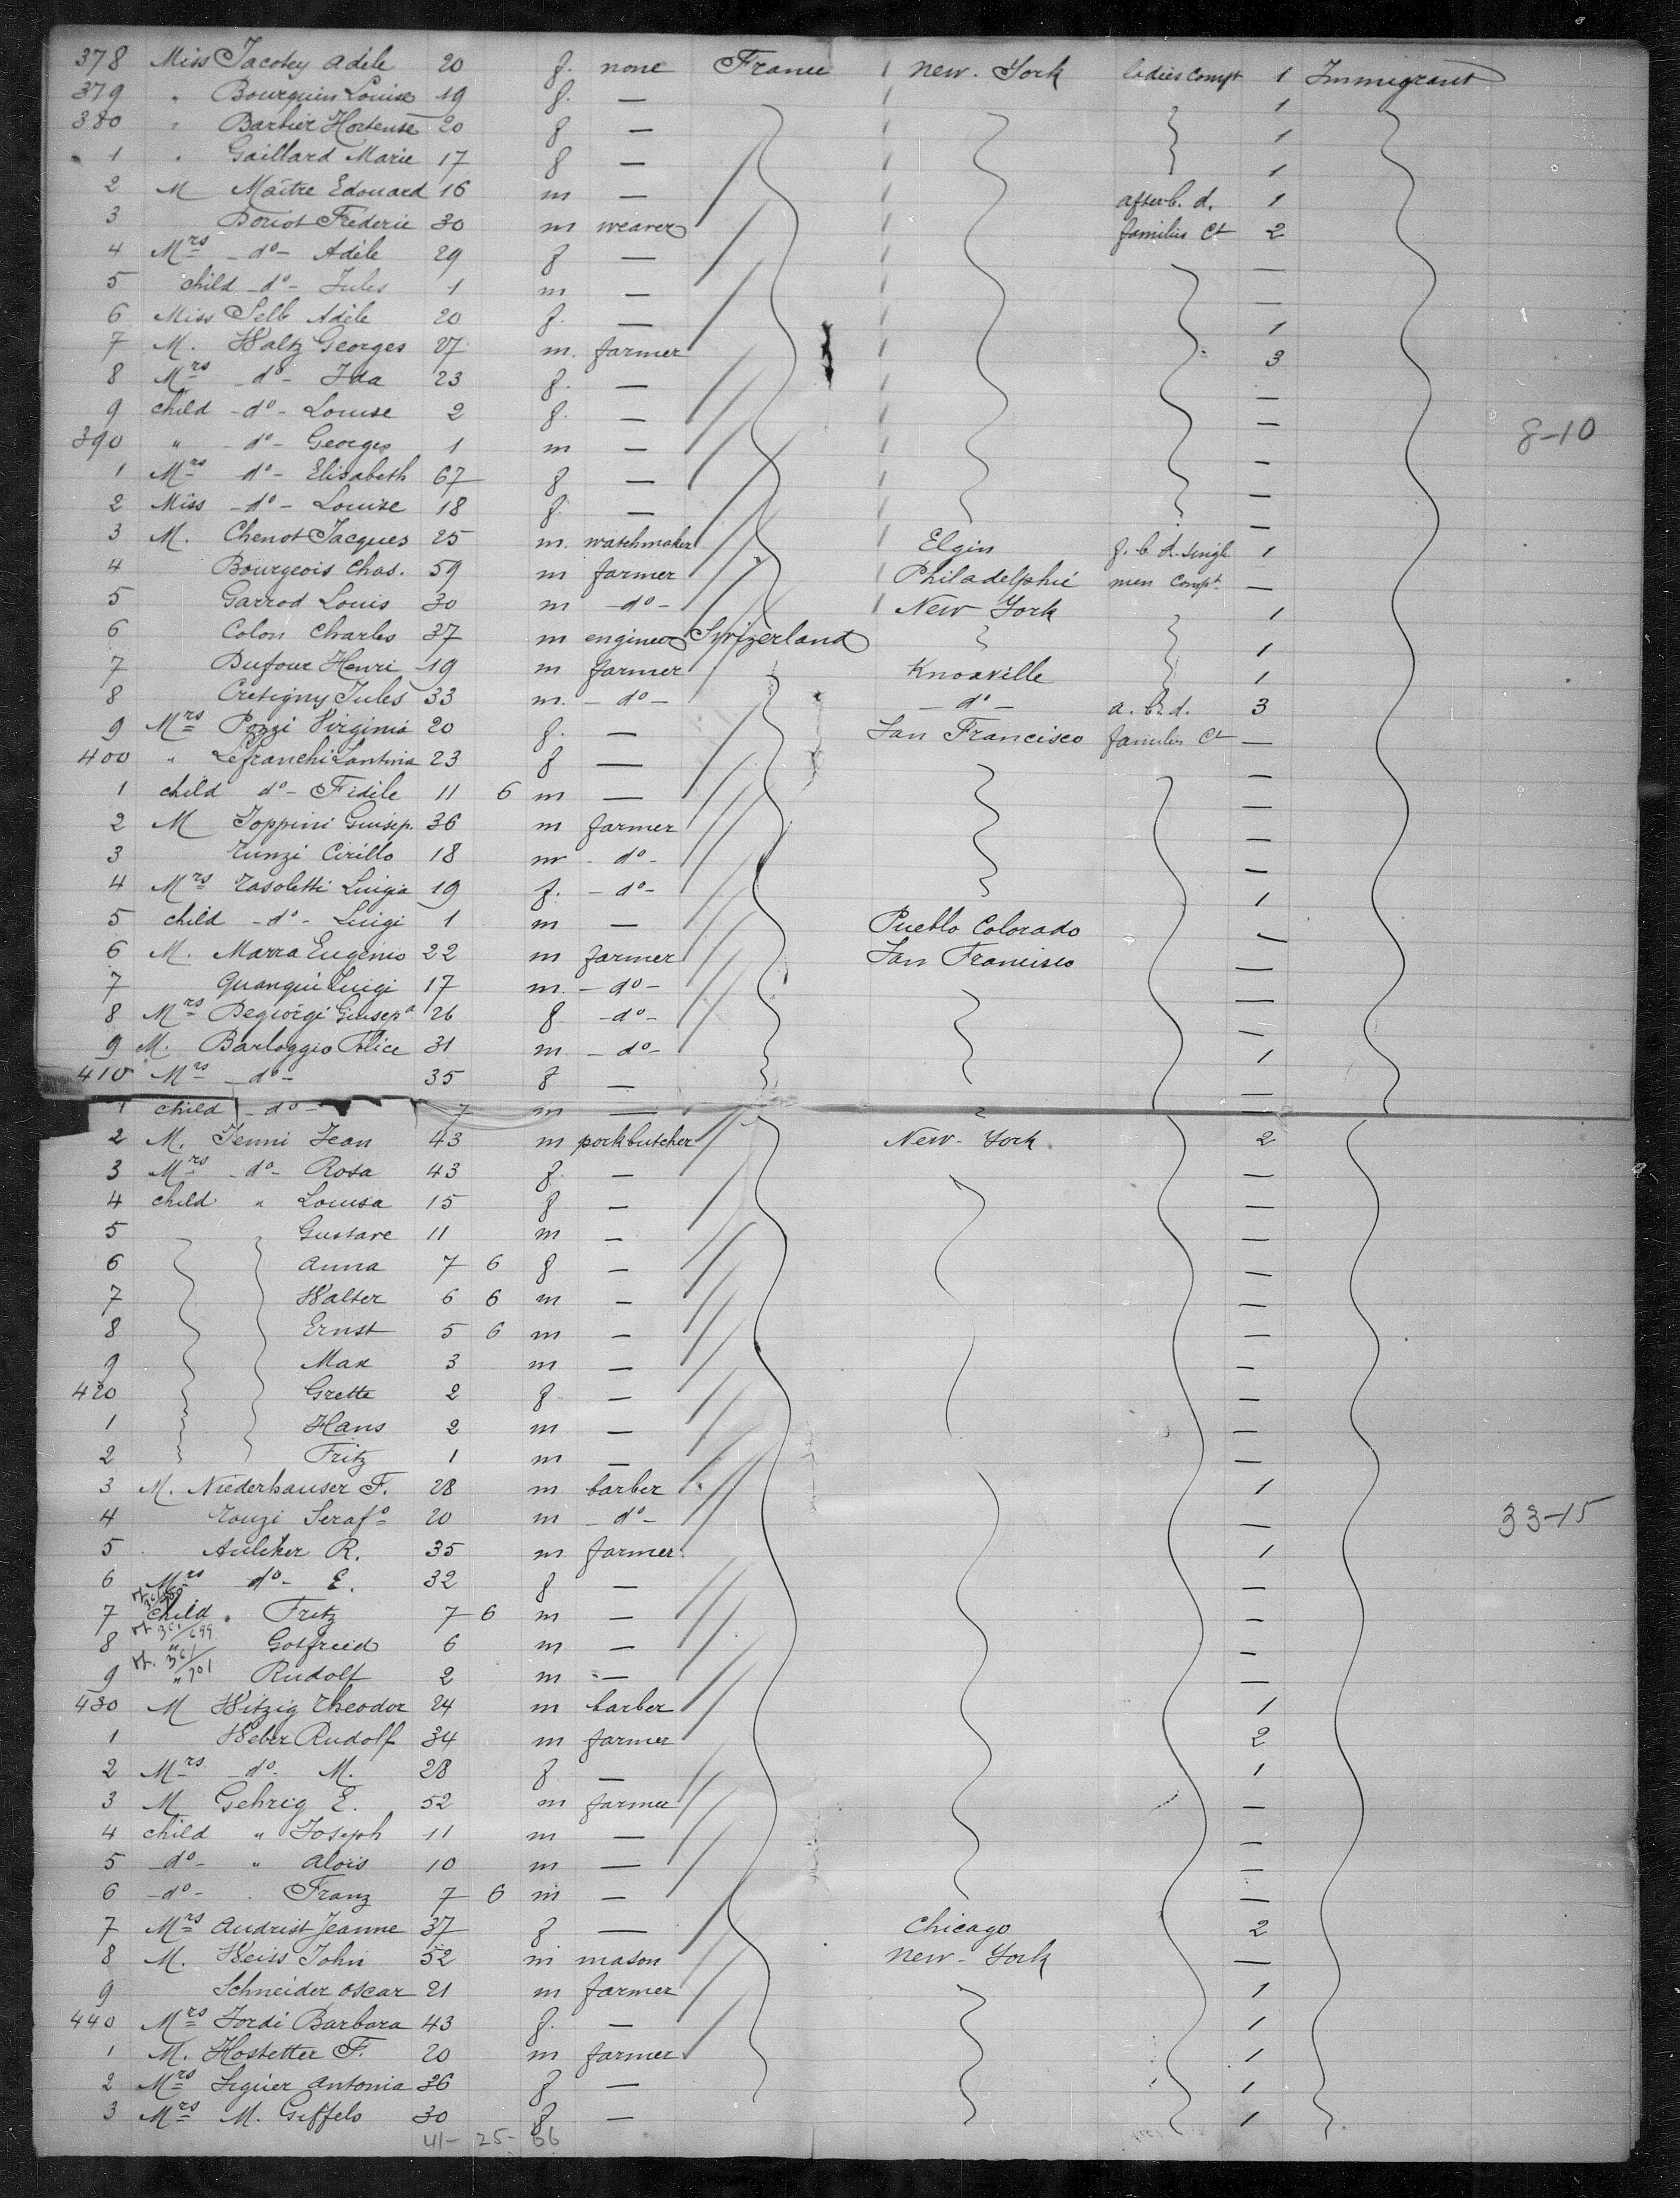 378 Miss Jacotey Adèle 20 f. none France 1 New-York ladies compt 1 Immigrant
379 " Bourquin Louise 19 f. — 1 1
380 " Barbier Hortense 20 f — 1 1
1 " Gaillard Marie 17 f — 1 1
2 M Maître Edouard 16 m — 1 after b. d. 1
3 Boriot Frederic 30 m weaver 1 families Ct 2
4 Mrs -do- Adèle 29 f — 1 —
5 child -do- Jules 1 m — 1 —
6 Miss Selb Adèle 20 f. — 1 1
7 M. Waltz Georges 27 m. farmer 1 3
8 Mrs -do- Ida 23 f. — 1 —
9 child -do- Louise 2 f. — 1 —
390 " -do- Georges 1 m — 1 —
1 Mrs do- Elisabeth 67 f — 1 —
2 Miss -do- Louise 18 f. — 1 —
3 M. Chenot Jacques 25 m. watchmaker 1 Elgin f. b d. singl. 1
4 Bourgeois Chas. 59 m farmer 1 Philadelphie men compt. —
5 Garrod Louis 30 m -do- 1 New York 1
6 Colon Charles 37 m engineer Swizerland 1
7 Dufour Henri 19 m farmer Knoxville 1
8 Cretigny Jules 33 m. -do- -do- a. b. d. 3
9 Mrs Pozzi Virginia 20 f. — San Francisco families Ct —
400 " Lefranchi Santina 23 f — —
1 child do- Fidile 11 6 m — —
2 M Toppini Guisep. 36 m farmer —
3 Tunzi Cirillo 18 m -do- —
4 Mrs Tasoletti Luigia 19 f. -do- 1
5 child -do- Luigi 1 m — Pueblo Colorado —
6 M. Marra Eugenio 22 m farmer San Francisco —
7 Quanqui Luigi 17 m. -do- —
8 Mrs Degiorgi Giusepa 26 f -do- —
9 M. Barloggio Felice 31 m -do- 1
410 Mrs -do- 35 f — —
1 child -do- 7 m — —
2 M. Jenni Jean 43 m porkbutcher New-York 2
3 Mrs -do- Rosa 43 f. — —
4 child " Louisa 15 f — —
5 Gustave 11 m — —
6 Anna 7 6 f — —
7 Walter 6 6 m — —
8 Ernst 5 6 m — —
9 Max 3 m — —
420 Grette 2 f — —
1 Hans 2 m — —
2 Fritz 1 m — —
3 M. Niederhauser F. 28 m barber 1
4 Touzi Serafo 20 m -do- —
5 Aulcker R. 35 m farmer 1
6 Mrs do- E. 32 f — —
7 child " Fritz 7 6 m — —
8 " Gotfried 6 m — —
9 " Rudolf 2 m — —
430 M Witzig Theodor 24 m barber 1
1 Weber Rudolf 34 m farmer 2
2 Mrs -do- M. 28 f — 1
3 M. Gehrig E. 52 m farmer —
4 child " Joseph 11 m — —
5 -do- " Alois 10 m — —
6 -do- " Franz 7 6 m — —
7 Mrs Audrist Jeanne 37 f — Chicago 2
8 M. Weiss John 52 m mason New-York —
9 Schneider Oscar 21 m farmer 1
440 Mrs Jordi Barbara 43 f. — 1
1 M. Hostetter F. 20 m farmer 1
2 Mrs Siguer Antonia 36 f — 1
3 Mrs M. Geffels 30 f — 1
41- 25- 66
8-10
33-15